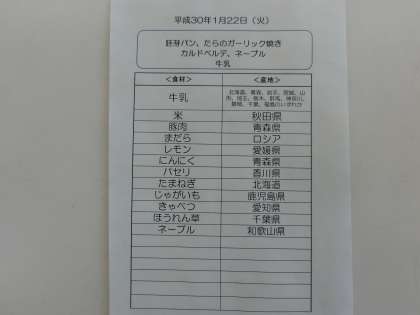 平成30年1月22日（火）
胚芽パン、たらのガーリック焼き
カルドベルデ、ネーブル
牛乳
＜食材＞ ＜産地＞
牛乳 北海道、青森、岩手、宮城、山
形、埼玉、栃木、群馬、神奈川、
静岡、千葉、福島のいずれか
米 秋田県
豚肉 青森県
まだら ロシア
レモン 愛媛県
にんにく 青森県
パセリ 香川県
たまねぎ 北海道
じゃがいも 鹿児島県
きゃべつ 愛知県
ほうれん草 千葉県
ネーブル 和歌山県